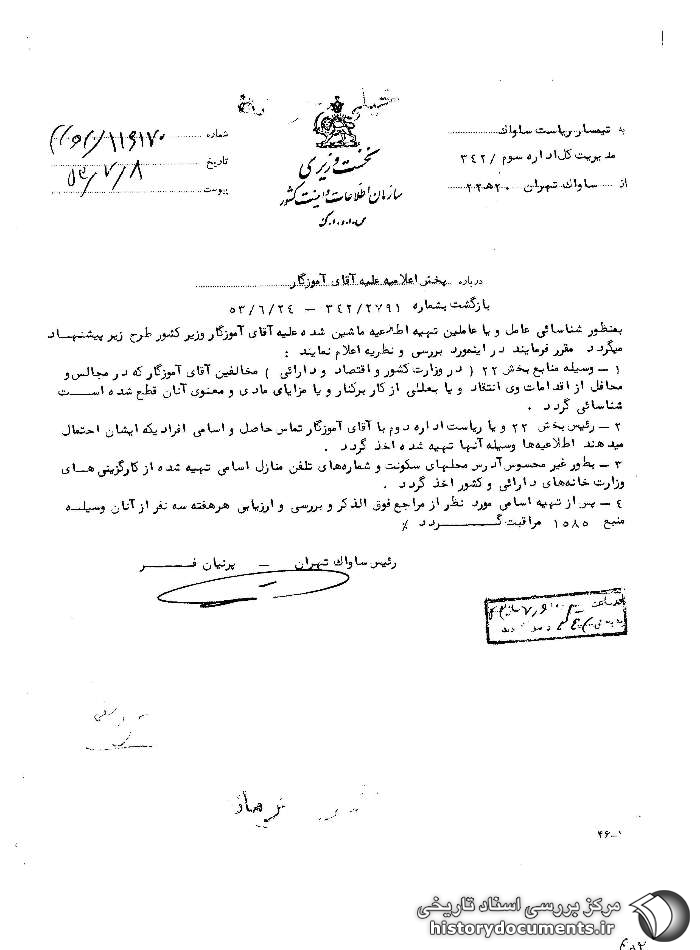 نخست وزیری
سازمان اطلاعات و امنیت کشور
س.ا.و.ا.ک
به تیمسار ریاست ساواک
مدیریت کل اداره سوم / ۳۴۲
از ساواک تهران ۲۰ ه ۲۲
شماره ۱۱۶۱۷۰
تاریخ ۵۳/۷/۸
پیوست
درباره پخش اعلامیه علیه آقای آموزگار
بازگشت بشماره ۳۴۲/۲۷۹۱ – ۵۳/۶/۲۴
بمنظور شناسائی عامل و یا عاملین تهیه اطلاعیه ماشین شده علیه آقای آموزگار وزیر کشور طرح زیر پیشنهاد
میگردد مقرر فرمایند در اینمورد بررسی و نظریه اعلام نمایند :
۱ – وسیله منابع بخش ۲۲ ( در وزارت کشور و اقتصاد و دارائی ) مخالفین آقای آموزگار که در مجالس و
محافل از اقدامات وی انتقاد و یا بعللی از کار برکنار و یا مزایای مادی و معنوی آنان قطع شده است
شناسائی گردد .
۲ – رئیس بخش ۲۲ و یا ریاست اداره دوم با آقای آموزگار تماس حاصل و اسامی افرادیکه ایشان احتمال
میدهند اطلاعیه‌ها وسیله آنها تهیه شده اخذ گردد .
۳ – بطور غیر محسوس آدرس محلهای سکونت و شماره‌های تلفن منازل اسامی تهیه شده از کارگزینی های
وزارت خانه‌های دارائی و کشور اخذ گردد .
۴ – پس از تهیه اسامی مورد نظر از مراجع فوق الذکر و بررسی و ارزیابی هر هفته سه نفر از آنان وسیله
منبع ۱۵۸۵ مراقبت گردد ٪
رئیس ساواک تهران – پرنیان فر
۴۶-۱
مرکز بررسی اسناد تاریخی
historydocuments.ir